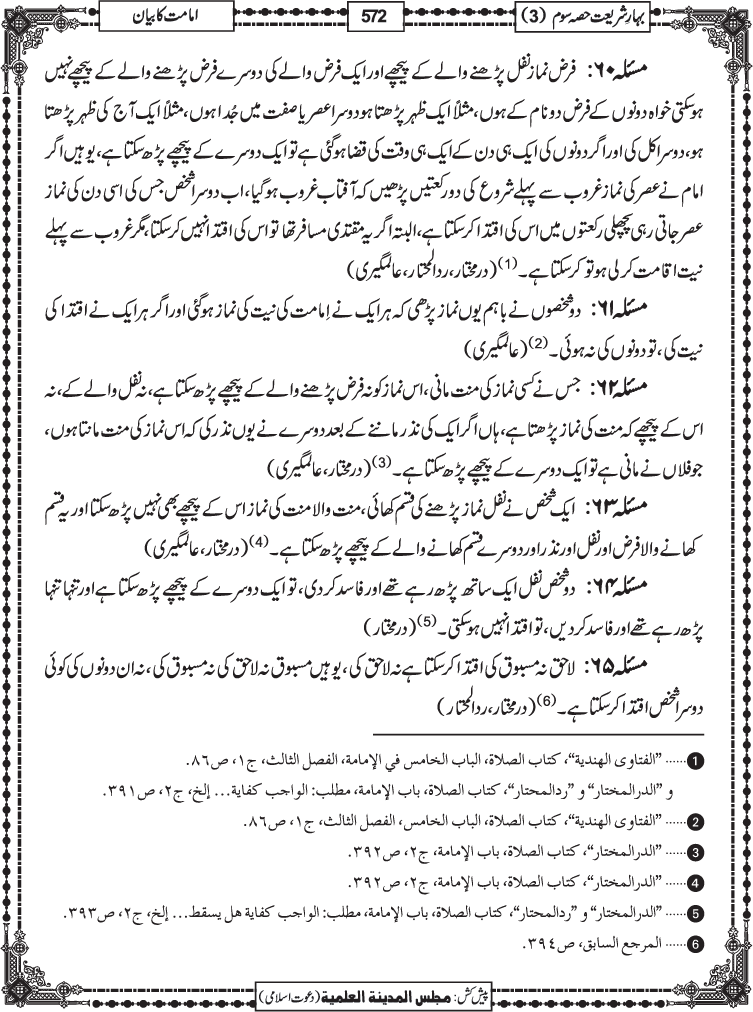 بہارِ شریعت حصہ سوم (3)
572
امامت کا بیان
مسئلہ ۶۰: فرض نماز نفل پڑھنے والے کے پیچھے اور ایک فرض والے کی دوسرے فرض پڑھنے والے کے پیچھے نہیں
ہو سکتی خواہ دونوں کے فرض دو نام کے ہوں، مثلاً ایک ظہر پڑھتا ہو دوسرا عصر یا صفت میں جُدا ہوں، مثلاً ایک آج کی ظہر پڑھتا
ہو، دوسرا کل کی اور اگر دونوں کی ایک ہی دن کے ایک ہی وقت کی قضا ہوگئی ہے تو ایک دوسرے کے پیچھے پڑھ سکتا ہے، یوہیں اگر
امام نے عصر کی نماز غروب سے پہلے شروع کی دو رکعتیں پڑھیں کہ آفتاب غروب ہوگیا، اب دوسرا شخص جس کی اسی دن کی نماز
عصر جاتی رہی پچھلی رکعتوں میں اس کی اقتدا کر سکتا ہے، البتہ اگر یہ مقتدی مسافر تھا تو اس کی اقتدا نہیں کر سکتا، مگر غروب سے پہلے
نیت اقامت کر لی ہو تو کر سکتا ہے۔ (1) (درمختار، ردالمحتار، عالمگیری)
مسئلہ ۶۱: دو شخصوں نے باہم یوں نماز پڑھی کہ ہر ایک نے اِمامت کی نیت کی نماز ہوگئی اور اگر ہر ایک نے اقتدا کی
نیت کی، تو دونوں کی نہ ہوئی۔ (2) (عالمگیری)
مسئلہ ۶۲: جس نے کسی نماز کی منت مانی، اس نماز کو نہ فرض پڑھنے والے کے پیچھے پڑھ سکتا ہے، نہ نفل والے کے، نہ
اس کے پیچھے کہ منت کی نماز پڑھتا ہے، ہاں اگر ایک کی نذر ماننے کے بعد دوسرے نے یوں نذر کی کہ اس نماز کی منت مانتا ہوں،
جو فلاں نے مانی ہے تو ایک دوسرے کے پیچھے پڑھ سکتا ہے۔ (3) (درمختار، عالمگیری)
مسئلہ ۶۳: ایک شخص نے نفل نماز پڑھنے کی قسم کھائی، منت والا منت کی نماز اس کے پیچھے بھی نہیں پڑھ سکتا اور یہ قسم
کھانے والا فرض اور نفل اور نذر اور دوسرے قسم کھانے والے کے پیچھے پڑھ سکتا ہے۔ (4) (درمختار، عالمگیری)
مسئلہ ۶۴: دو شخص نفل ایک ساتھ پڑھ رہے تھے اور فاسد کر دی، تو ایک دوسرے کے پیچھے پڑھ سکتا ہے اور تنہا تنہا
پڑھ رہے تھے اور فاسد کر دیں، تو اقتدا نہیں ہو سکتی۔ (5) (درمختار)
مسئلہ ۶۵: لاحق نہ مسبوق کی اقتدا کر سکتا ہے نہ لاحق کی، یوہیں مسبوق نہ لاحق کی نہ مسبوق کی، نہ ان دونوں کی کوئی
دوسرا شخص اقتدا کر سکتا ہے۔ (6) (درمختار، ردالمحتار)
1 ...... ”الفتاوی الھندیة“، کتاب الصلاة، الباب الخامس في الإمامة، الفصل الثالث، ج١، ص٨٦.
و ”الدرالمختار“ و ”ردالمحتار“، کتاب الصلاة، باب الإمامة، مطلب: الواجب کفایة... إلخ، ج٢، ص٣٩١.
2 ...... ”الفتاوی الھندیة“، کتاب الصلاة، الباب الخامس، الفصل الثالث، ج١، ص٨٦.
3 ...... ”الدرالمختار“، کتاب الصلاة، باب الإمامة، ج٢، ص٣٩٢.
4 ...... ”الدرالمختار“، کتاب الصلاة، باب الإمامة، ج٢، ص٣٩٢.
5 ...... ”الدرالمختار“ و ”ردالمحتار“، کتاب الصلاة، باب الإمامة، مطلب: الواجب کفایة ھل یسقط... إلخ، ج٢، ص٣٩٣.
6 ...... المرجع السابق، ص٣٩٤.
پیش کش: مجلس المدینة العلمیة (دعوتِ اسلامی)